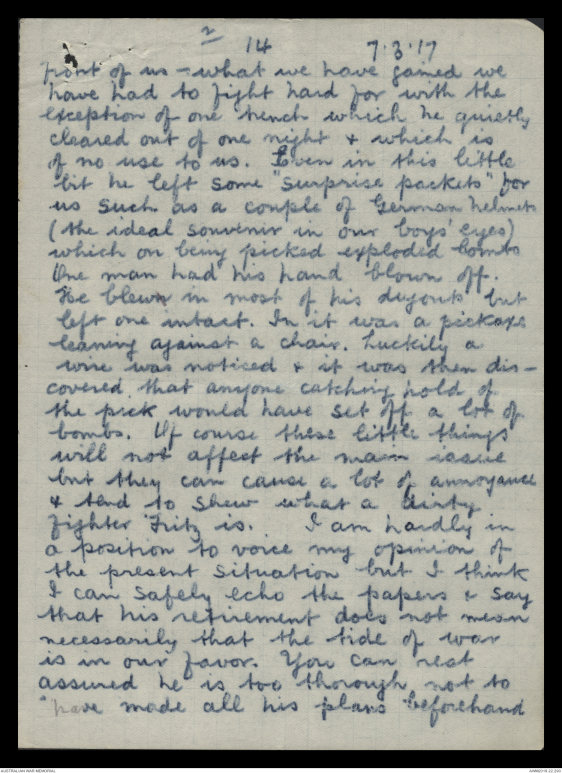 2
14 7.3.17
front of us - what we have gained we
have had to fight hard for with the
exception of one trench which he quietly
cleared out of one night & which is
of no use to us. Even in this little
bit he left some "surprise packets" for
us such as a couple of German helmets
(the ideal souvenir in our boys' eyes)
which on being picked exploded bombs
One man had his hand blown off.
He blew in most of his dugouts but
left one intact. In it was a pickaxe
leaning against a chair. Luckily a
wire was noticed & it was then dis-
covered that anyone catching hold of
the pick would have set off a lot of
bombs. Of course these little things
will not affect the main issue
but they can cause a lot of annoyance
& tend to shew what a dirty
fighter Fritz is. I am hardly in
a position to voice my opinion of
the present situation but I think
I can safely echo the papers & say
that his retirement does not mean
necessarily that the tide of war
is in our favor. You can rest
assured he is too thorough not to
have made all his plans beforehand
AUSTRALIAN WAR MEMORIAL